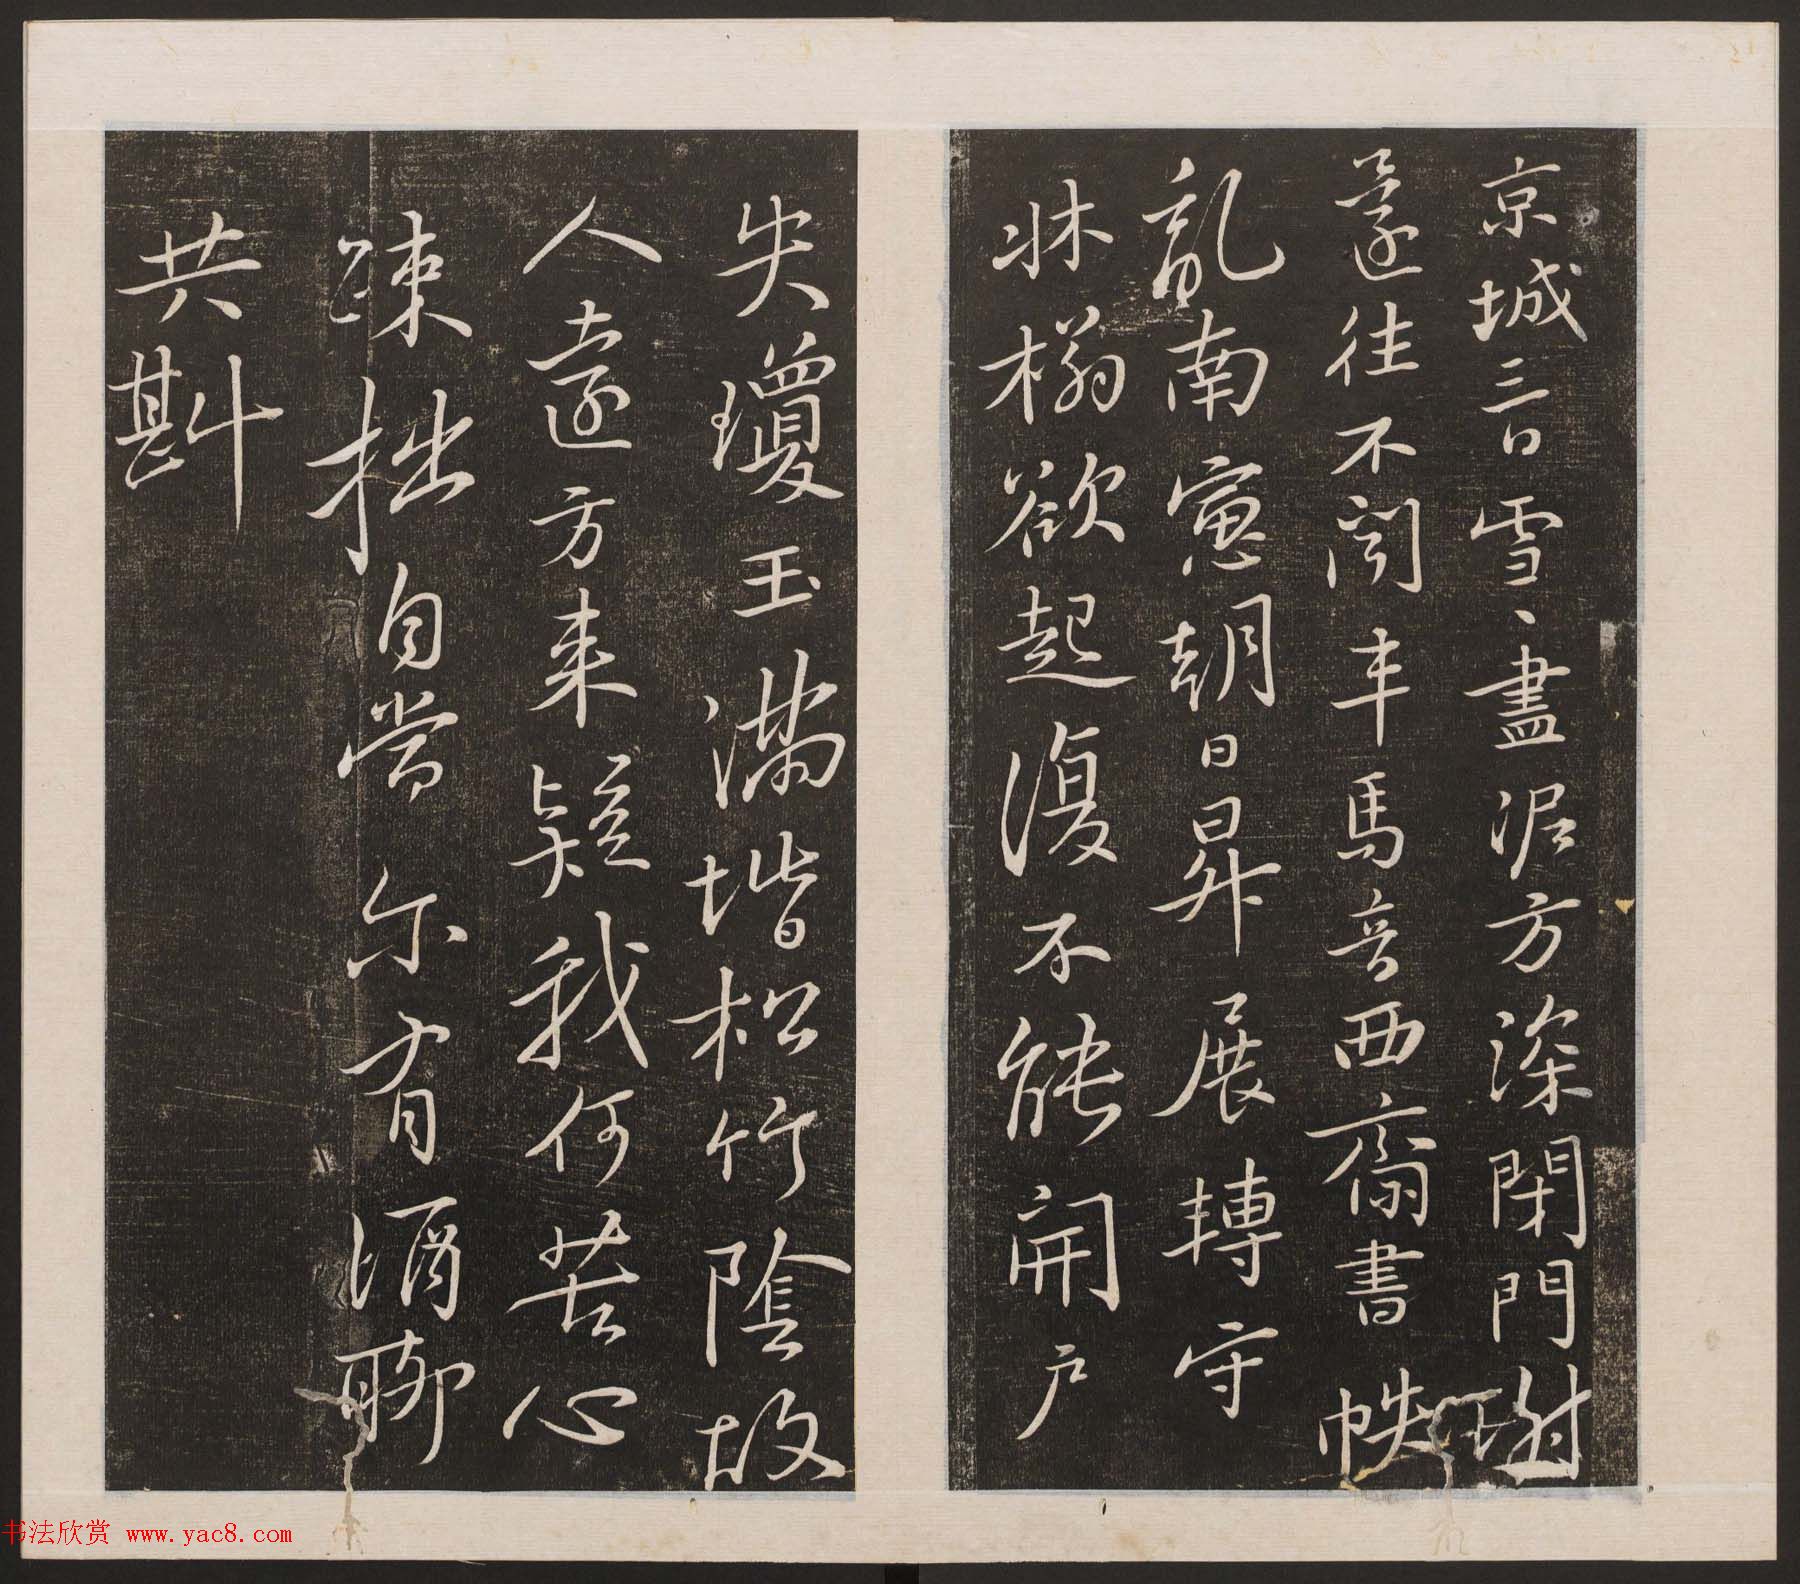 京城三日雪〻盡泥方深閉門謝
還往不聞車馬音西齋書帙
亂南窻朝日昇展轉守
牀榻欲起復不能開戶
失瓊玉滿堦松竹陰故
人遠方來疑我何苦心
踈拙自當尔有酒聊
共斟
书法欣赏 www.yac8.com